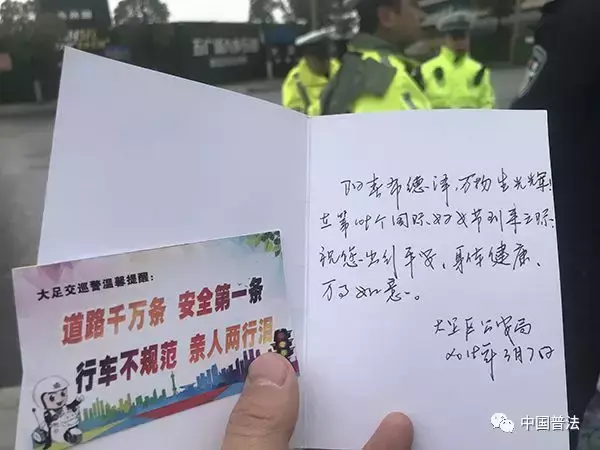 大足交巡警温馨提醒:
道路千万条 安全第一条
行车不规范 亲人两行泪
阳春布德泽,万物生光辉!
在第109个国际妇女节到来之际,
祝您出行平安、身体健康、
万事如意。
大足区公安局
2019年3月7日
中国普法